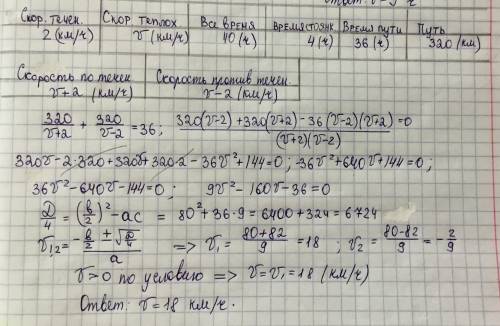 Ответ: V=9 ч
Скор. течен. Скор. теплох Все время Время стоянк. Время пути Путь
2 (км/ч) V (км/ч) 40 (ч) 4 (ч) 36 (ч) 320 (км)
Скорость по течен Скорость против течен.
V+2 (км/ч) V-2 (км/ч)
320/(V+2) + 320/(V-2) = 36; (320(V-2)+320(V+2)-36(V-2)(V+2))/((V+2)(V-2)) = 0
320V-2·320+320V+320·2-36V²+144=0; -36V²+640V+144=0;
36V²-640V-144=0; 9V²-160V-36=0
D/4 = (b/2)²-ac = 80²+36·9=6400+324=6724
V₁,₂ = (-b/2 ± √(D/4))/a => V₁ = (80+82)/9 = 18; V₂ = (80-82)/9 = -2/9
V>0 по условию => V=V₁=18 (км/ч)
Ответ: V=18 км/ч.